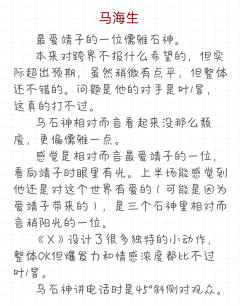 马海生
最爱靖子的一位儒雅石神。
本来对跨界不报什么希望的，但实
际超出预期，虽然稍微有点平，但整体
还不错的。问题是他的对手是叶/冒，
这真的打不过。
马石神相对而言看起来没那么颓
废，更偏儒雅一点。
感觉是相对而言最爱靖子的一位，
看向靖子时眼里有光。上半场能感觉到
他还是对这个世界有爱的（可能是因为
爱靖子带来的），是三个石神里相对而
言稍阳光的一位。
《X》设计了很多独特的小动作，
整体OK但爆发力和情感浓度都比不过
叶/冒。
马石神讲电话时是45°斜侧对观众。